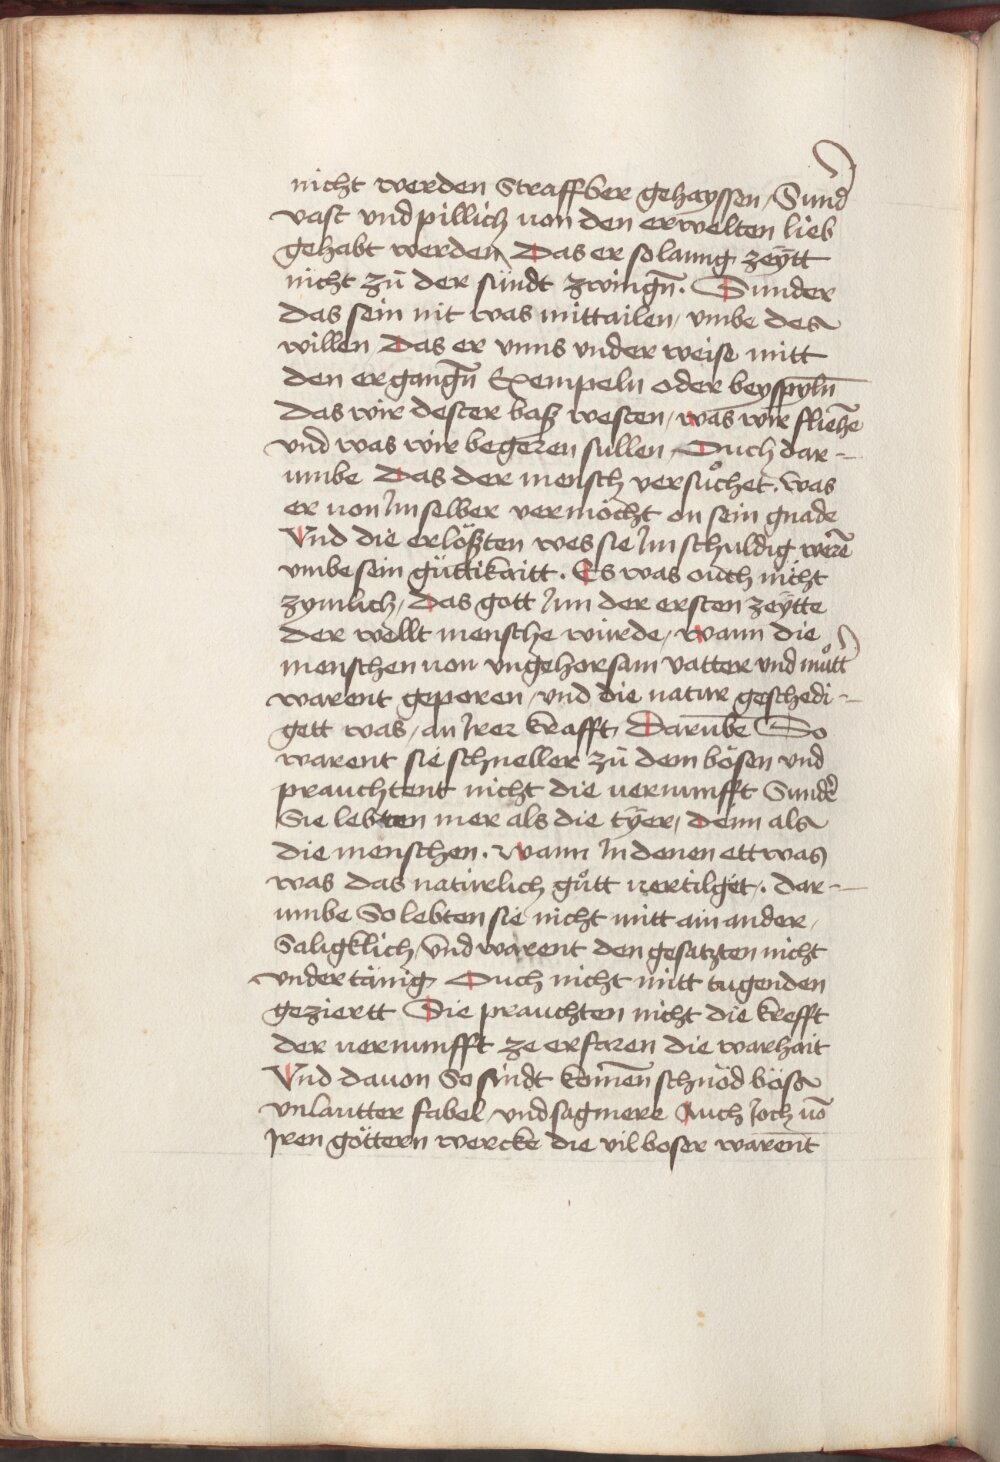 nicht werden Straffber gehayssen / Sund̾
vast vnd pillich von den erwelten lieb
gehabt werden / Das er so lanng zeÿtt
nicht zů der sündt zwingn̄ . Sunder
das sein nit was mittailen / vmbe des
willen / Das er vnns vnder weise mitt
den ergangn̄ Exempeln oder beyspyln̄
Das wir dester basz westen / was wir fliehē
vnd was wir begeren sullen / Ouch dar -
umbe Das der mensch versůchet . was
er von Im selber vermöcht on sein gnade
Vnd die erlößten wes sie Im schuldig werē
vmbe sein güttikaitt . Es was ouch nicht
zymlich / Das gott Inn der ersten zeÿtte
der wellt mensche würde / wann die
menschen von vngehorsam vatter vnd můtt̾
warent geporen / vnd die natur geschedi -
gett was / an Irer krafft / Darūbe So
warent sie schneller zů dem bösen vnd
prauchtent nicht die vernunfft Sund̾
Sie lebtten mer als die tÿer / denn als
die menschen . wann In denen ettwas
was das natürlich gůtt vertilget . dar -
umbe So lebten sie nicht mitt ain ander /
Saligklich / vnd warent den gesatzten nicht
vndertänig / Ouch nicht mitt tugenden
geziertt Sie prauchten nicht die krefft
der vernunfft ze erfaren die warhait
Vnd dauon So sindt komen̄ schnöd böse
vnlautter fabel / vnd sagmere Auch Joch vō
Jren göttern wercke die vil boser warent